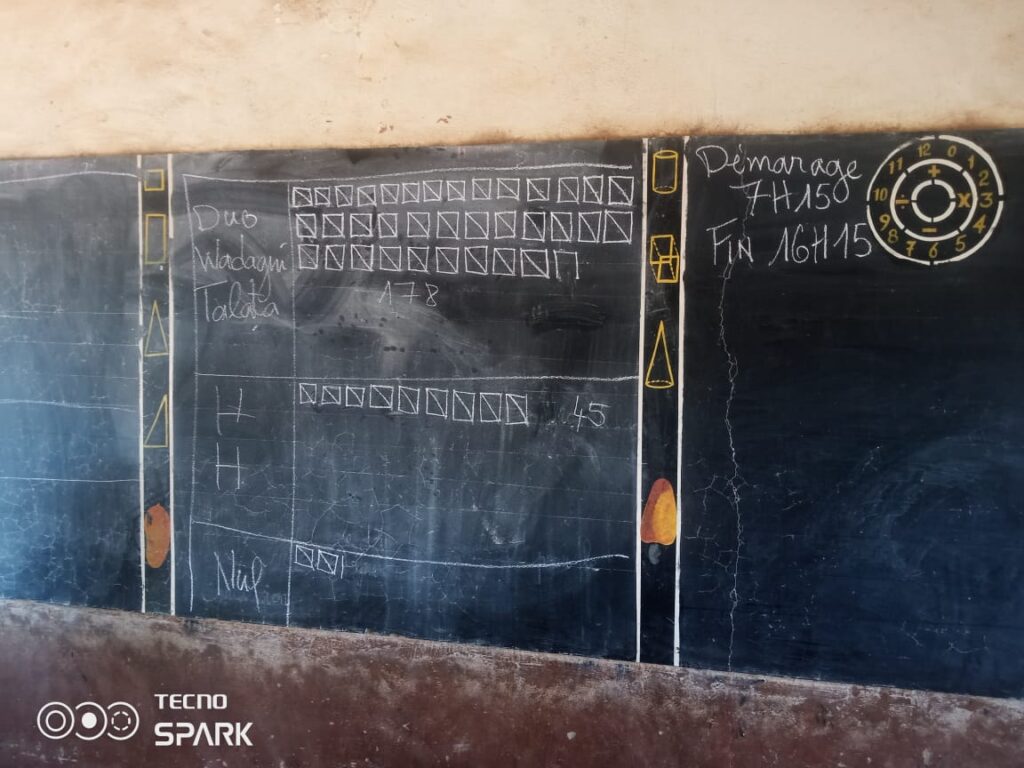 Duo
Wadagni
Talata
178
H
H
45
Nul
Démarage
7H150
Fin 16H15
11 12 0 1 2 3 4 5 6 7 8 9 10
+ x - ÷
TECNO
SPARK